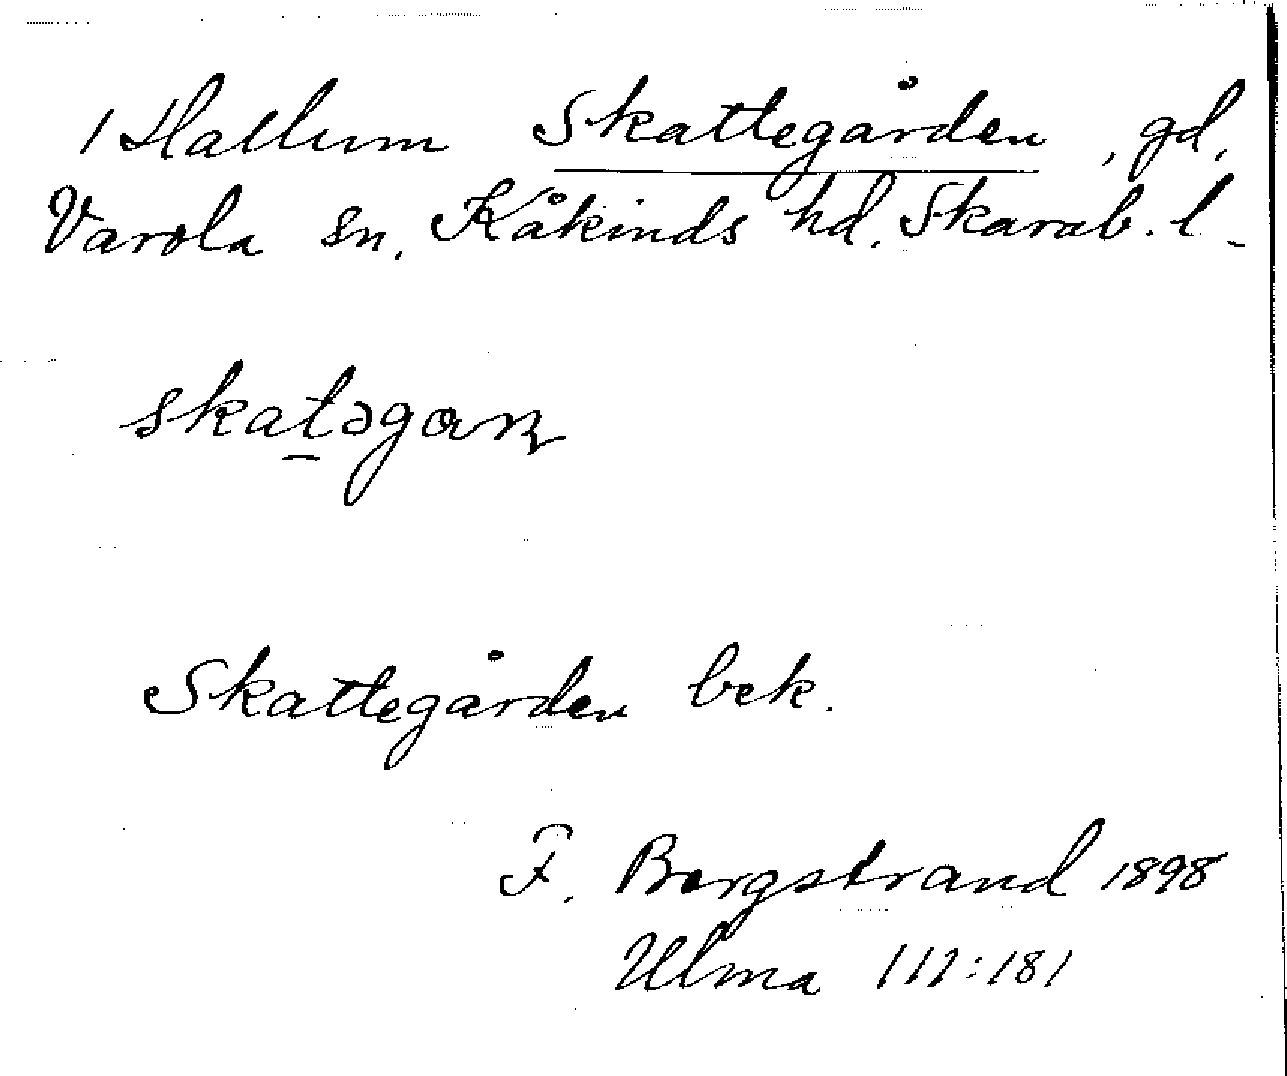 1 Hallum Skattegården, gd,
Varola sn. Kåkinds hd. Skarab. l.
skatəgaɳ
Skattegården bek.
F. Borgstrand 1898
Ulma 111:181